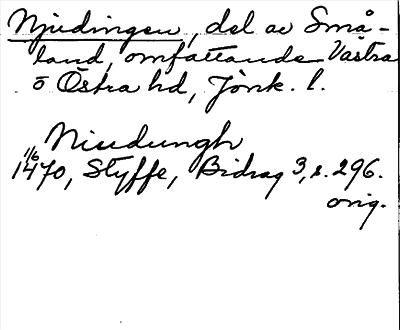 Njudingen, del av Små-
land, omfattande Västra
o Östra hd, Jönk. l.
Niudungh
1/6
1470, Styffe, Bidrag 3, s. 296.
orig.